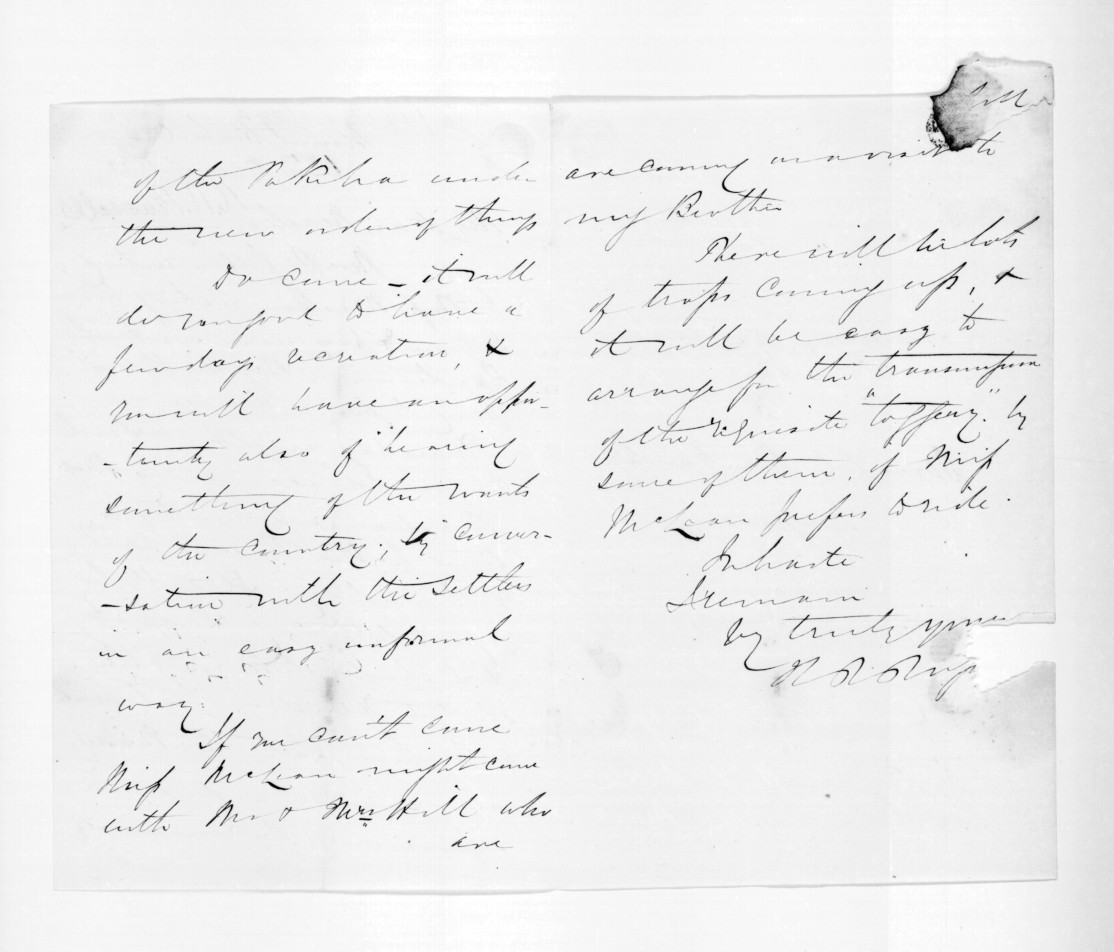 of the Pakeha under
the new order of things
Do come – it will
do you good to have a
few days recreation, &
you will have an oppor-
-tunity also of hearing
something of the wants
of the country, by conver-
-sation with the settlers
in an easy informal
way.
If you can't come
Miss McLean might come
with Mr & Mrs Hill who
are
are coming on a visit to
my Brother
There will be lots
of traps coming up, &
it will be easy to
arrange for the transmission
of the requisite "toggery" by
some of them, if Miss
McLean prefers to ride.
In haste
I remain
Vy truly yours